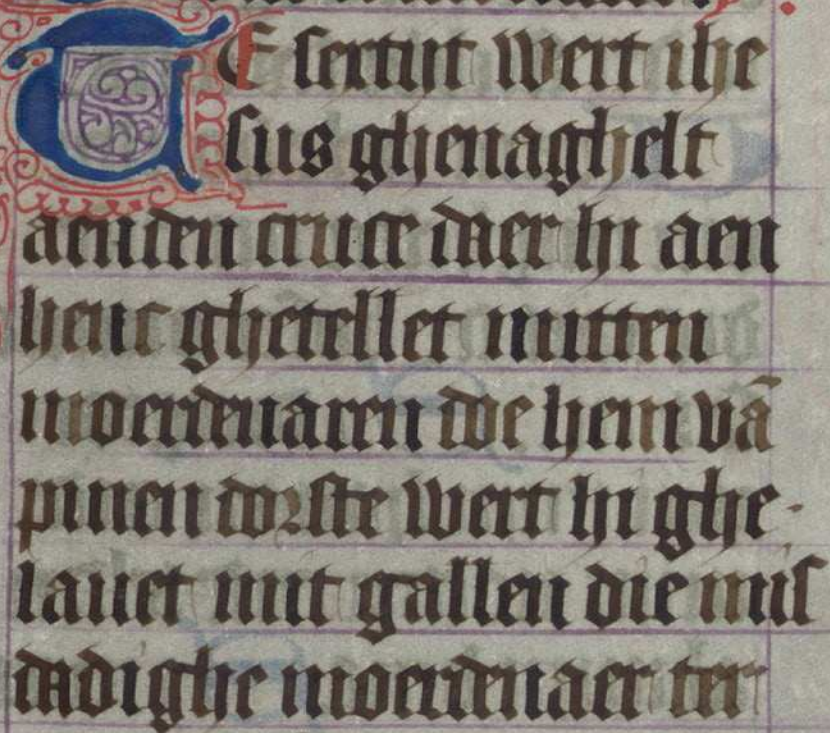 TE sertijt wert ihe
sus ghenaghelt
aenden cruce daer hi aen
henc ghetellet mitten
moerdenaren doe hem vā
pinen dorste wert hi ghe
lauet mit gallen die mis
dadighe moerdenaer ter